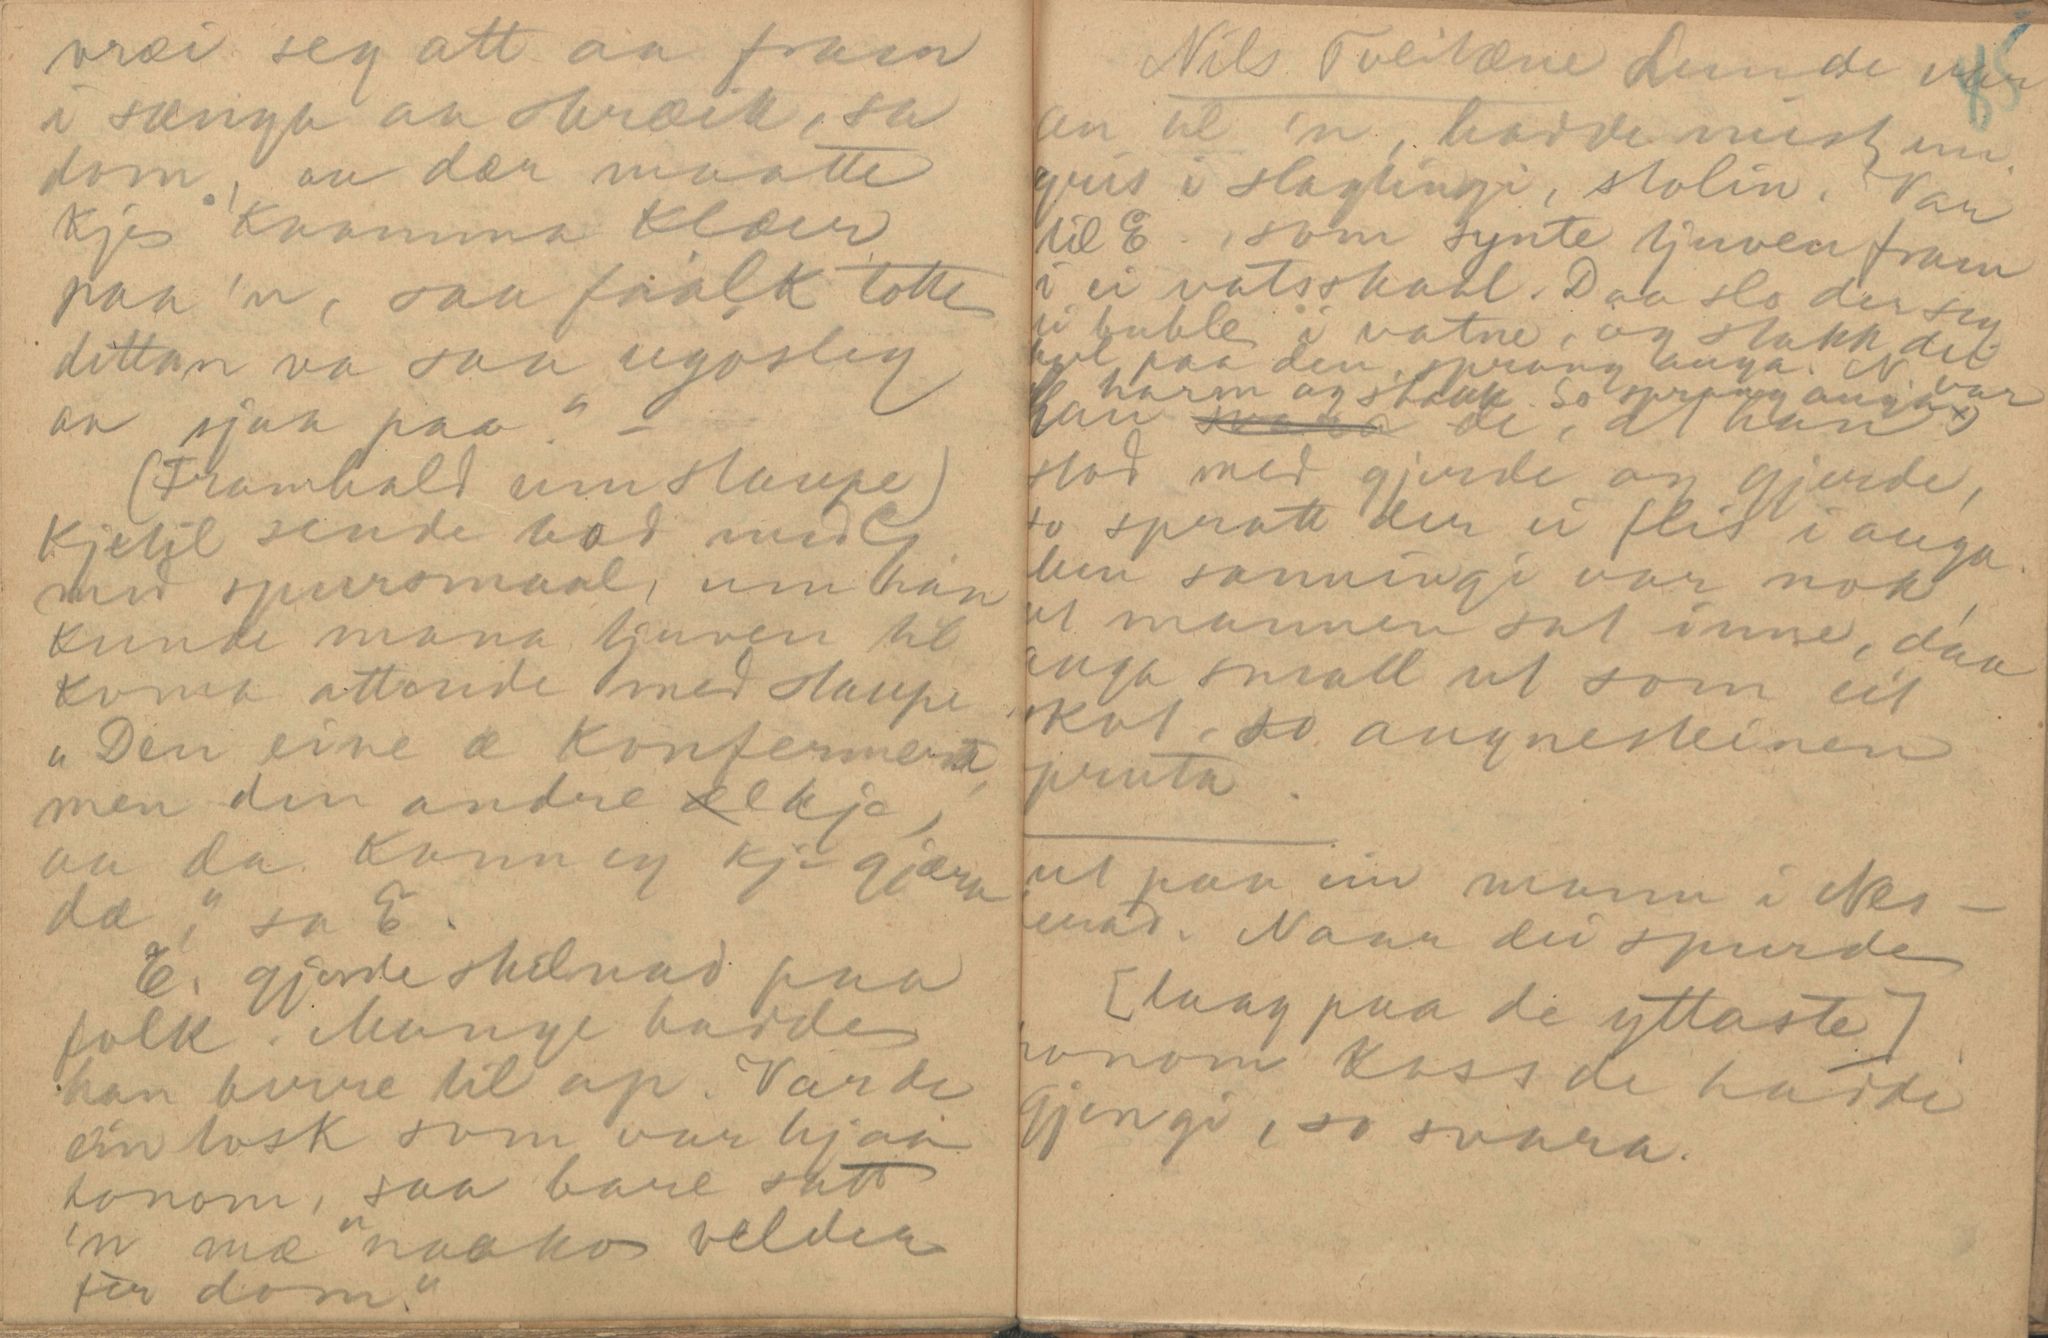 vræi seg att aa fram
i sænga aa skræik, sa
dom, aa dær maatte
kje "kaamma klæir
paa 'n, saa faalk totte
dittan va saa ugosleg
aa sjaa paa." –
(Framhald um staupe)
Kjetil sende bod med G.
med spursmaal, um han
kunde mana tjuven til
koma attende med staupe.
"Den eine æ konfermera,
men den andre æ kje,
aa da kann eg kje gjæra
dæ," sa E.
E. gjorde skilnad paa
folk. Mange hadde
han berre til ap. Var de
ein tosk som var hjaa
honom, saa bare satt
'n mæ "naako velder
fer dom."
85
Nils Tveitæne Lunde var
an til 'n, hadde mist ein
gris i slagtingi, stolin. Var
til E., som synte tjuven fram
i ei vatsskaal. Daa slo der seg
ei buble i vatne, og stakk det
hol paa den, sprang auga. N. var
harm og stakk. So sprang auga
han de, at han
stod med gjerde og gjerde,
so spratt der ei flis i auga.
Men sanningi var nok,
at mannen sat inne, daa
auga small ut som eit
skot, so augnesteinen
spruta.
ut paa ein mann i Nes-
herad. Naar dei spurde
[laag paa de yttaste]
honom koss de hadde
gjengi, so svara.